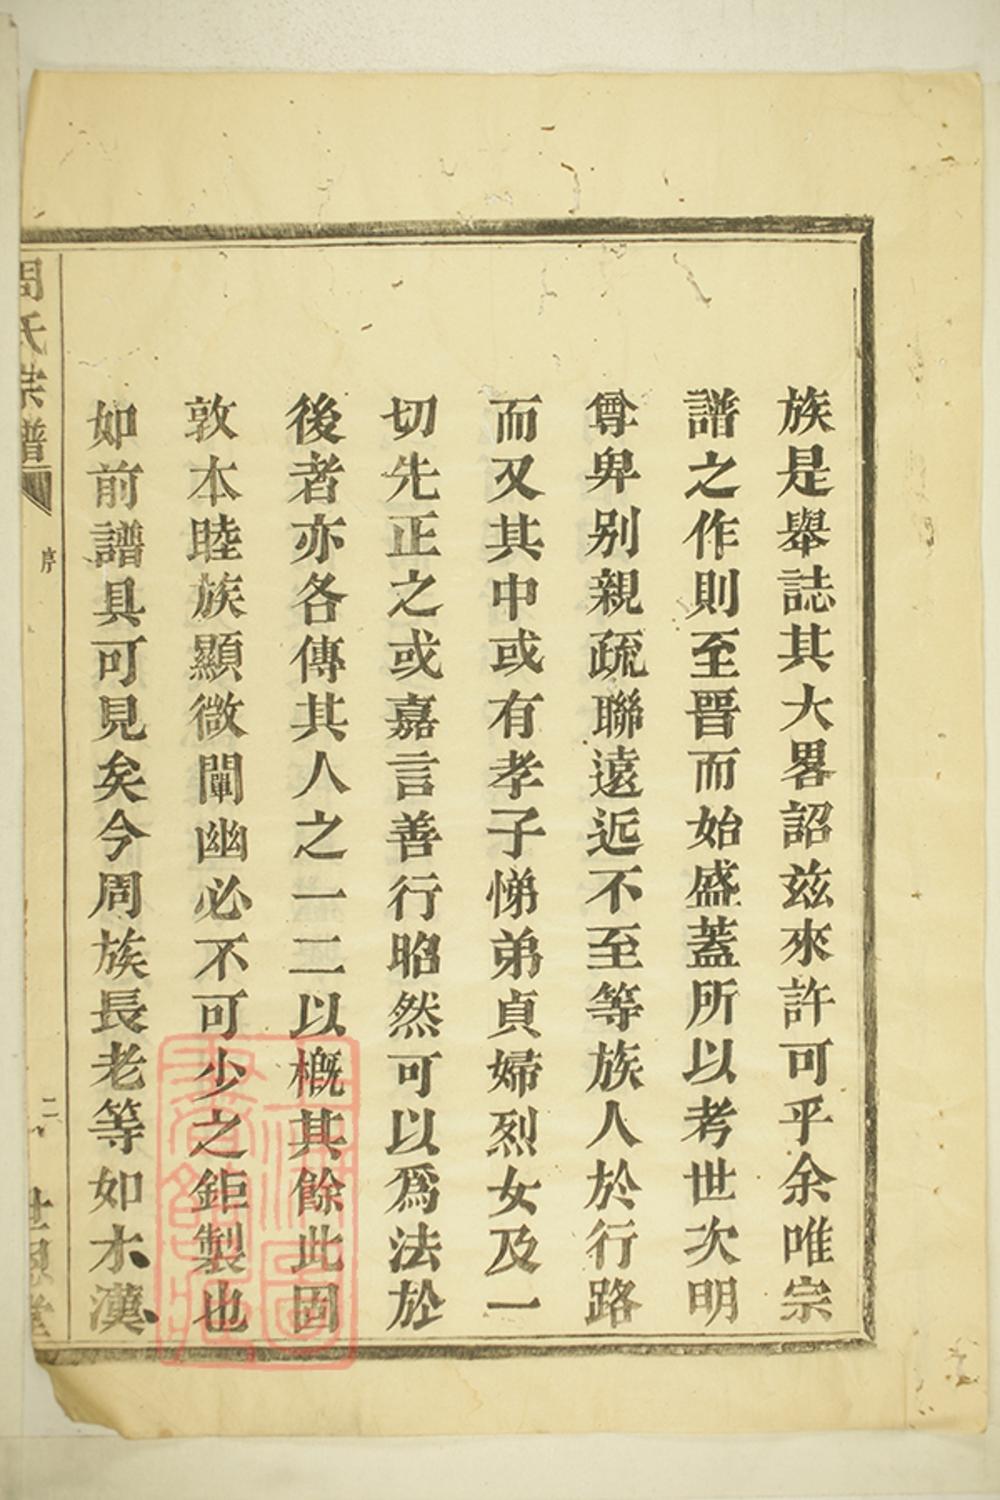 族是舉誌其大畧詔兹來許可乎余唯宗
譜之作則至晋而始盛蓋所以考世次明
尊卑别親疏聯遠近不至等族人於行路
而又其中或有孝子悌弟貞婦烈女及一
切先正之或嘉言善行昭然可以爲法於
後者亦各傳其人之一二以概其餘此固
敦本睦族顯微闡幽必不可少之鉅製也
如前譜具可見矣今周族長老等如木漢
周氏宗譜
序
二
世恩堂